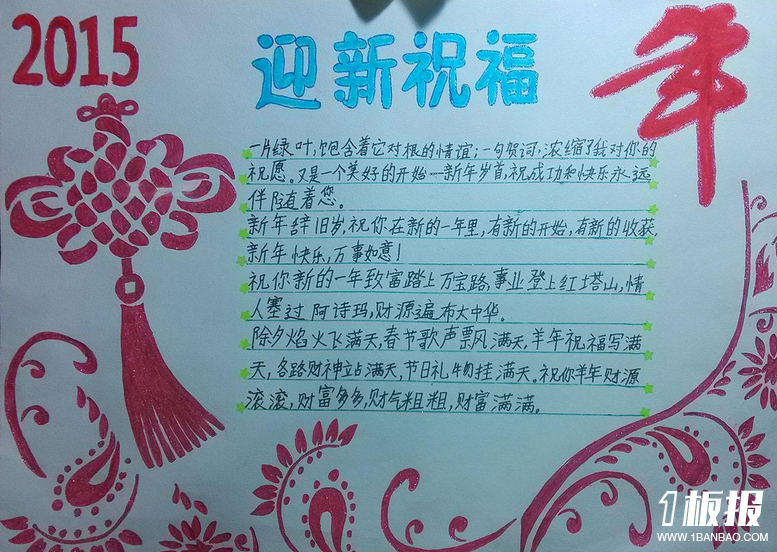 2015
迎新祝福
年
一片绿叶,饱含着它对根的情谊;一句贺词,浓缩了我对你的
祝愿。又是一个美好的开始—新年岁首,祝成功和快乐永远
伴随着您。
新年辞旧岁,祝你在新的一年里,有新的开始,有新的收获,
新年快乐,万事如意!
祝你新的一年致富踏上万宝路,事业登上红塔山,情
人塞过阿诗玛,财源遍布大中华。
除夕焰火飞满天,春节歌声飘风满天,羊年祝福写满
天,各路财神立占满天,节日礼物挂满天。祝你羊年财源
滚滚,财富多多,财气粗粗,财富满满。
1板报
WWW.1BANBAO.COM